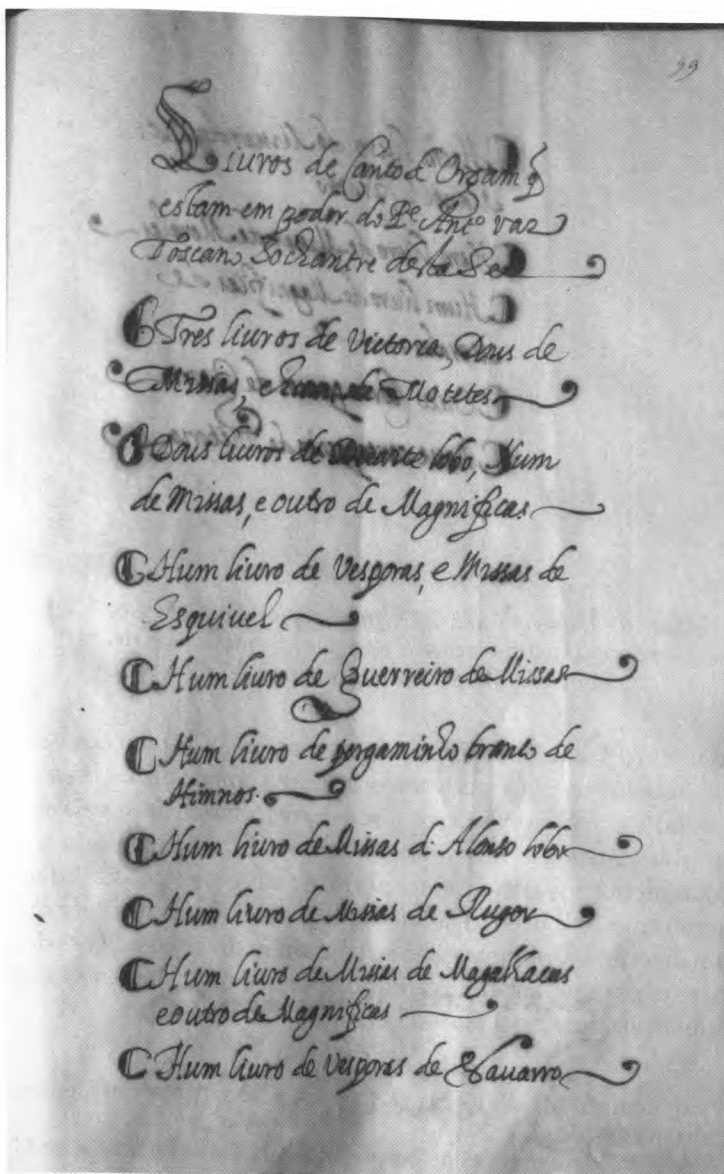 99
Liuros de Canto d'Orgam q̃
estam em poder do Pe. Anto. vaz
Toscano Sochantre desta Se
Tres liuros de Victoria, Dous de
Missas, e hum de Motetes
Dous liuros de Duarte lobo, Hum
de Missas, e outro de Magnificas
Hum liuro de Vesporas, e Missas de
Esquiuel
Hum liuro de Guerreiro de Missas
Hum liuro de pergaminho branco de
Himnos.
Hum liuro de Missas d. Alonso lobo
Hum liuro de Missas de Rugor
Hum liuro de Missas de Magalhaens
e outro de Magnificas
Hum liuro de Vesporas de Nauarro